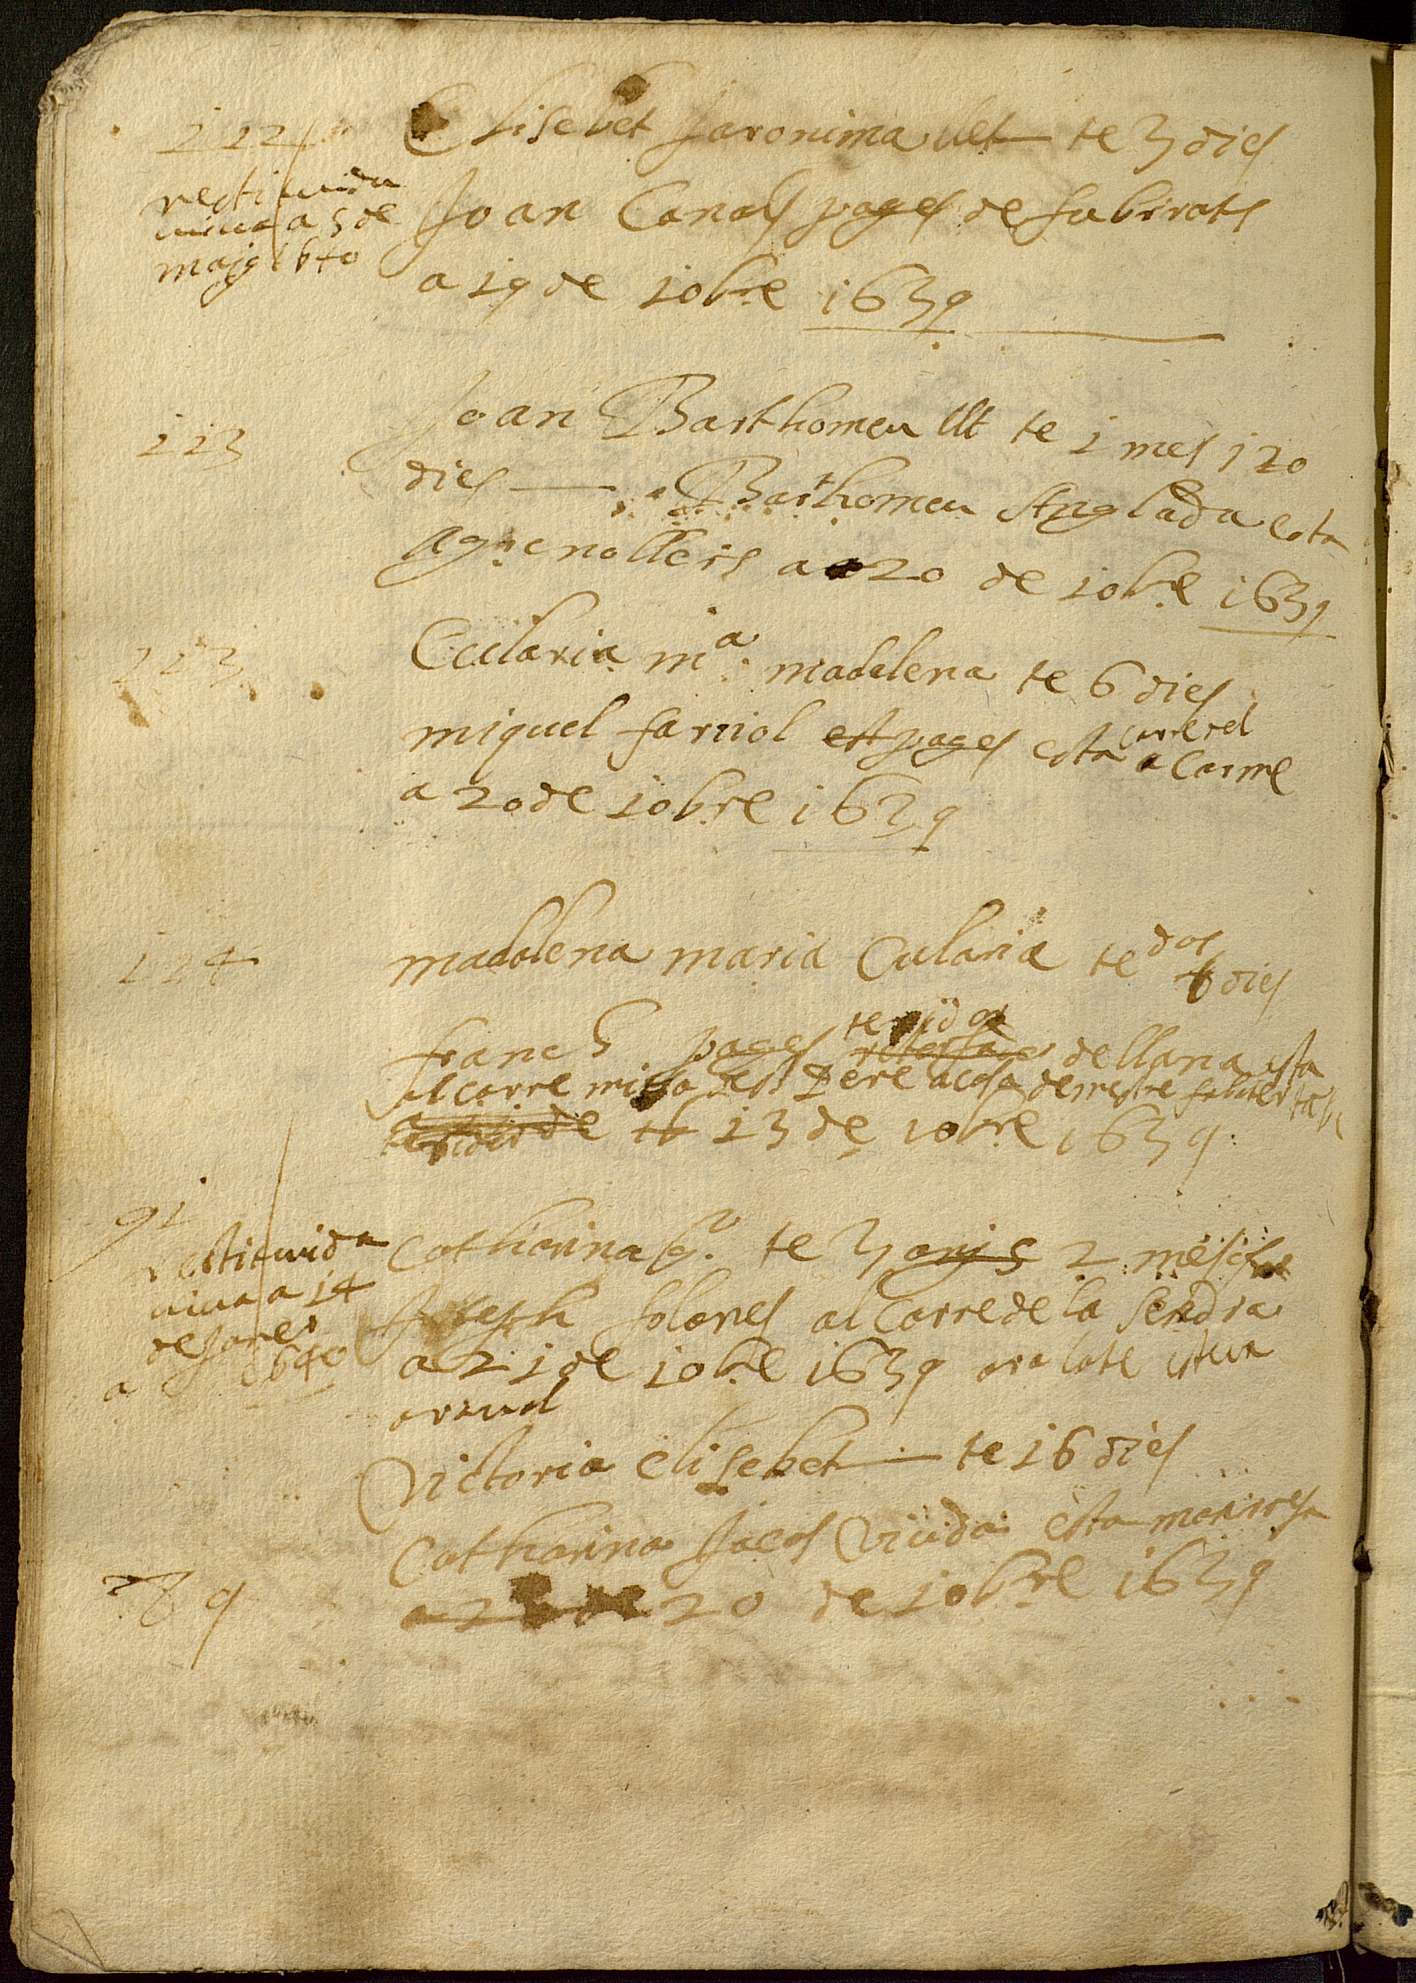 112
restituida
viva a 5 de
maig 1640
Elisebet Jaronima llet te 3 dies
Joan Canals pages de subirats
a 19 de 10bre 1639
113
Joan Barthomeu llt te 1 mes i 20
dies Barthomeu Anglada esta
a granollers a 20 de 10bre 1639
113
Eularia ma. madalena te 6 dies
miquel farriol pages esta carre del
a Carme
a 20 de 10bre 1639
114
madalena maria Eularia te dos
6 dies
franc pages texidor
de llana esta
al carre mitja de st Pere a casa de mestre
13 de 10bre 1639
91
restituida
viva a 14
de janer
a 1640
Catharina te 3 anys 2 mesos
Joseph solanes al carre de la sendra
a 21 de 10bre 1639 ara la te
arnad
Victoria elisebet te 16 dies
Catharina viuda esta manresa
89
a 2 de 20 de 10bre 1639